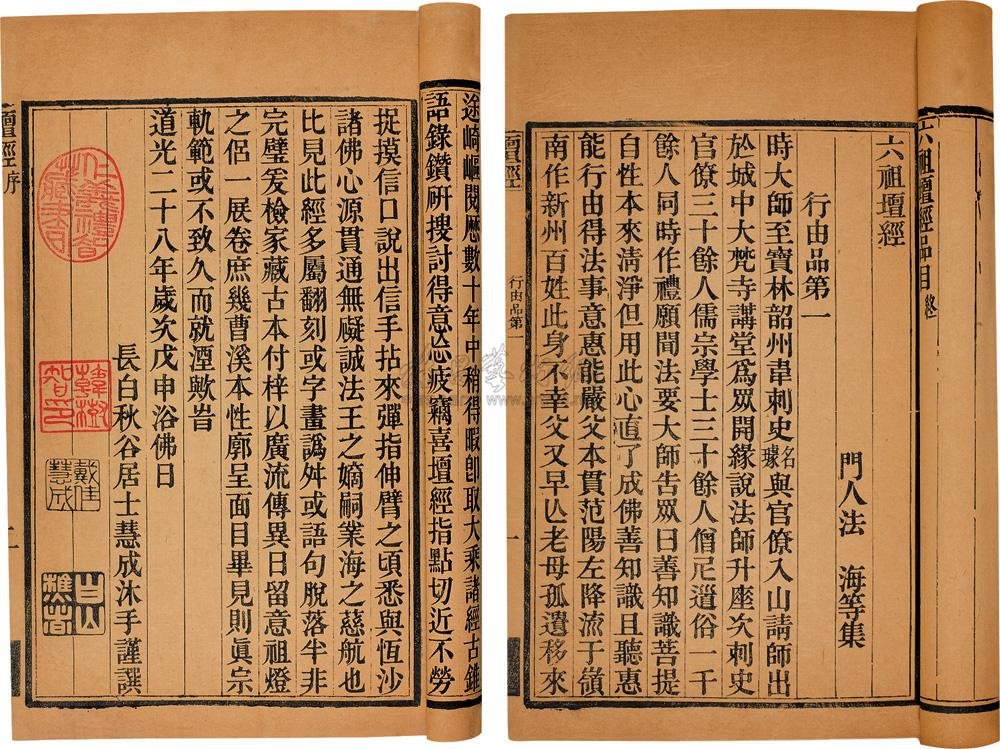 途崎嶇閱歷數十年中稍得暇卽取大乘諸經古錐
語錄鑽硏搜討得意忘疲竊喜壇經指點切近不勞
捉摸信口說出信手拈來彈指伸臂之頃悉與恆沙
諸佛心源貫通無礙誠法王之嫡嗣業海之慈航也
比見此經多屬翻刻或字畫譌舛或語句脫落半非
完璧爰檢家藏古本付梓以廣流傳異日留意祖燈
之侶一展卷庶幾曹溪本性廓呈面目畢見則眞宗
軌範或不致久而就湮歟旹
道光二十八年歲次戊申浴佛日
長白秋谷居士慧成沐手謹譔
戴佳慧成
壇經序
二
六祖壇經品目終
六祖壇經
門人法 海等集
行由品第一
時大師至寶林韶州韋刺史名璩與官僚入山請師出
於城中大梵寺講堂爲眾開緣說法師升座次刺史
官僚三十餘人儒宗學士三十餘人僧尼道俗一千
餘人同時作禮願聞法要大師告眾曰善知識菩提
自性本來清淨但用此心直了成佛善知識且聽惠
能行由得法事意惠能嚴父本貫范陽左降流于嶺
南作新州百姓此身不幸父又早亾老母孤遺移來
壇經
行由品第一
一